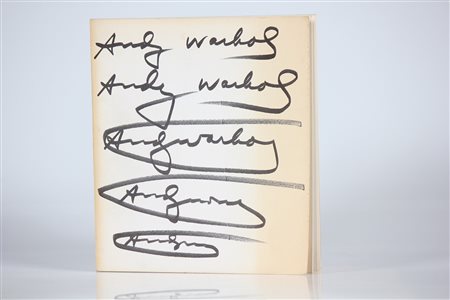 Andy Warhol
Andy Warhol
Andy Warhol
Andy
Andy